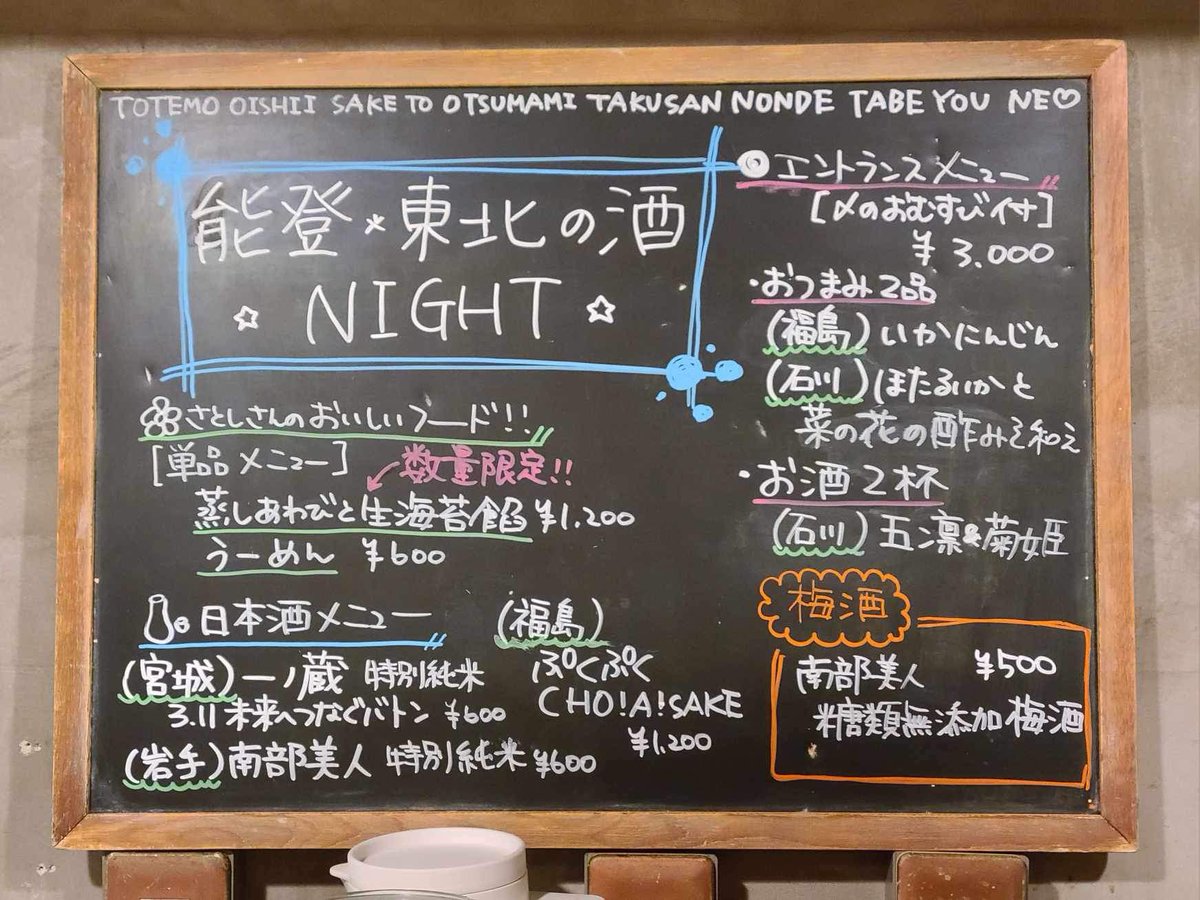 TOTEMO OISHII SAKE TO OTSUMAMI TAKUSAN NONDE TABE YOU NE♡
能登×東北の酒
☆ NIGHT ☆
さとしさんのおいしいフード!!
[単品メニュー]
数量限定!!
蒸しあわびと生海苔餡 ¥1,200
うーめん ¥600
日本酒メニュー
(宮城)一ノ蔵 特別純米
3.11未来へつなぐバトン ¥600
(岩手)南部美人 特別純米 ¥600
(福島)
ぷくぷく
CHO!A!SAKE
¥1,200
エントランスメニュー
[〆のおむすび付]
¥3.000
・おつまみ2品
(福島)いかにんじん
(石川)ほたるいかと
菜の花の酢みそ和え
・お酒2杯
(石川)五凛&菊姫
梅酒
南部美人 ¥500
糖類無添加梅酒